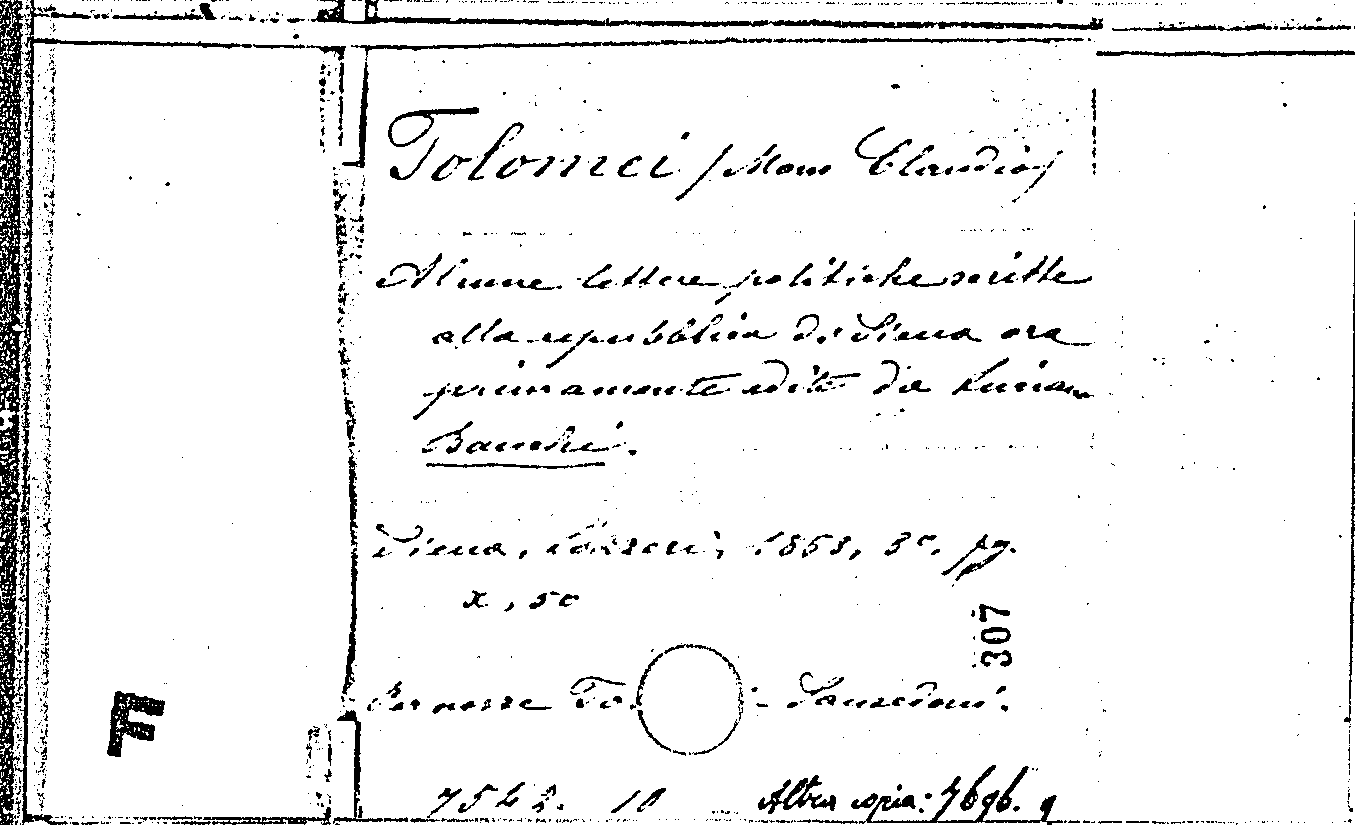 Tolomei (Mons Claudio)
Alcune lettere politiche scritte
alla repubblica di Siena ora
primamente edite da Lucian
Banchi.
Siena, 1868, 8°. pg.
x, 50
307
Per nozze To - Sansedoni.
F
7542. 10 Altra copia: 7696. 9